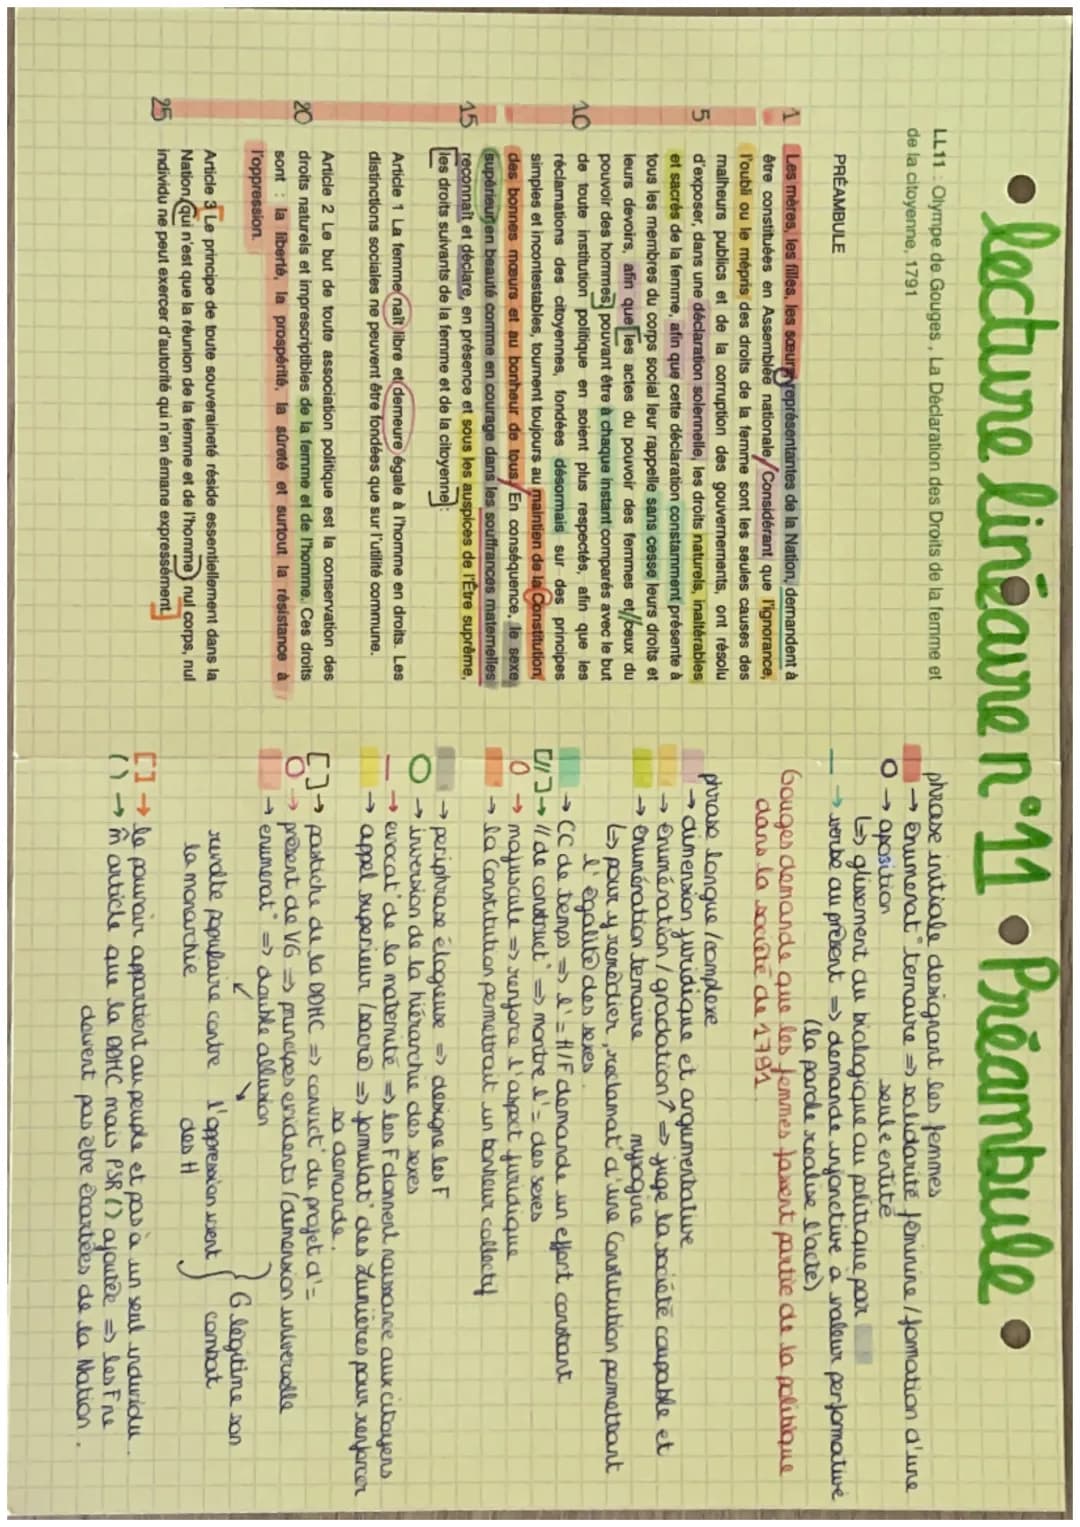 • lecture linéaire n°11 • Préambule •
LL11 : Olympe de Gouges , La Déclaration des Droits de la femme et
de la citoyenne, 1791
PRÉAMBULE
1 Les mères, les filles, les sœurs, représentantes de la Nation, demandent à
être constituées en Assemblée nationale. Considérant que l'ignorance,
l'oubli ou le mépris des droits de la femme sont les seules causes des
malheurs publics et de la corruption des gouvernements, ont résolu
5 d'exposer, dans une déclaration solennelle, les droits naturels, inaltérables
et sacrés de la femme, afin que cette déclaration constamment présente à
tous les membres du corps social leur rappelle sans cesse leurs droits et
leurs devoirs, afin que les actes du pouvoir des femmes et ceux du
pouvoir des hommes, pouvant être à chaque instant comparés avec le but
10 de toute institution politique en soient plus respectés, afin que les
réclamations des citoyennes, fondées désormais sur des principes
simples et incontestables, tournent toujours au maintien de la Constitution,
des bonnes mœurs et au bonheur de tous. En conséquence, le sexe
supérieur en beauté comme en courage dans les souffrances maternelles
15 reconnaît et déclare, en présence et sous les auspices de l'Être suprême,
les droits suivants de la femme et de la citoyenne :
Article 1 La femme naît libre et demeure égale à l'homme en droits. Les
distinctions sociales ne peuvent être fondées que sur l'utilité commune.
Article 2 Le but de toute association politique est la conservation des
20 droits naturels et imprescriptibles de la femme et de l'homme. Ces droits
sont : la liberté, la prospérité, la sûreté et surtout la résistance à
l'oppression.
Article 3 Le principe de toute souveraineté réside essentiellement dans la
Nation, qui n'est que la réunion de la femme et de l'homme ; nul corps, nul
25 individu ne peut exercer d'autorité qui n'en émane expressément.
phrase initiale designant les femmes
→ énumerat° ternaire => solidarité féminine / formation d'une
seule entité
O → aposition
↳ glissement du biologique au politique par
→ verbe au présent => demande injonctive à valeur performative
(la parole realise l'acte)
Gouges demande que les femmes fassent partie de la politique
dans la société de 1791.
phrase longue / complexe
→ dimension juridique et argumentative
→ énumération / gradation ↗ => juge la société coupable et
mysogine
→ énumération ternaire
↳ pour y remédier, reclamat° d'une Constitution permettant
l'égalité des sexes.
→ CC de temps => l'= H/F demande un effort constant
[//] → // de construct° => montre l'= des sexes
O → majuscule => renforce l'aspect juridique
→ la Constitution permettrait un bonheur collectif
→ periphrase élogieuse => designe les F
O → inversion de la hiérarchie des sexes
— → evocat° de la maternité => les F donnent naissance aux citoyens
→ appel superieur / sacré => formulat° des Lumières pour renforcer
sa demande.
[ ] → pastiche de la DDHC => convict° du projet d'=
O → présent de VG => principes evidents / dimension universelle
→ enumerat° => double allusion
revolte populaire contre
la monarchie
l'oppression vient
des H
G. légitime son
combat
[ ] → le pouvoir appartient au peuple et pas à un seul individu.
( ) → m̂ article que la DDHC mais PSR ( ) ajoutée => les F ne
doivent pas être écartées de la Nation.